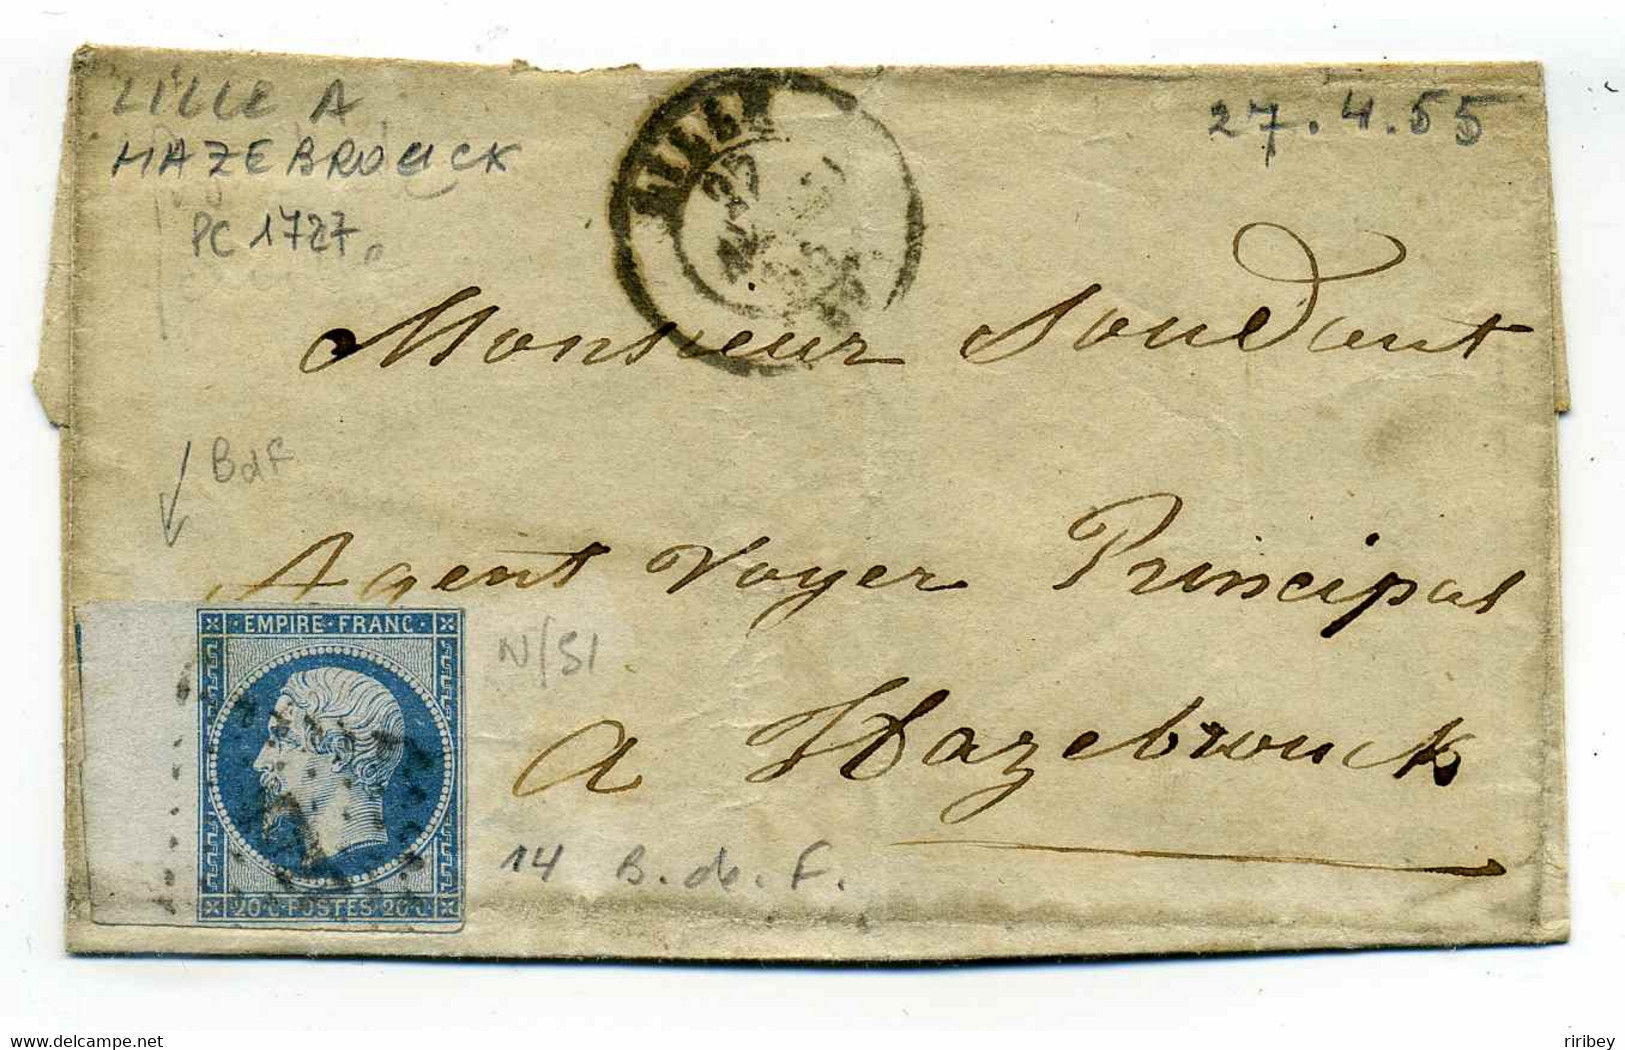 LILLE A
HAZEBROUCK
PC 1727
27.4.55
LILLE
27
Monsieur Soudant
BdF
Agent Voyer Principal
EMPIRE · FRANC ·
N/Sl
a Hazebrouck
14 B. de. F.
20 c POSTES 20 c
riribey